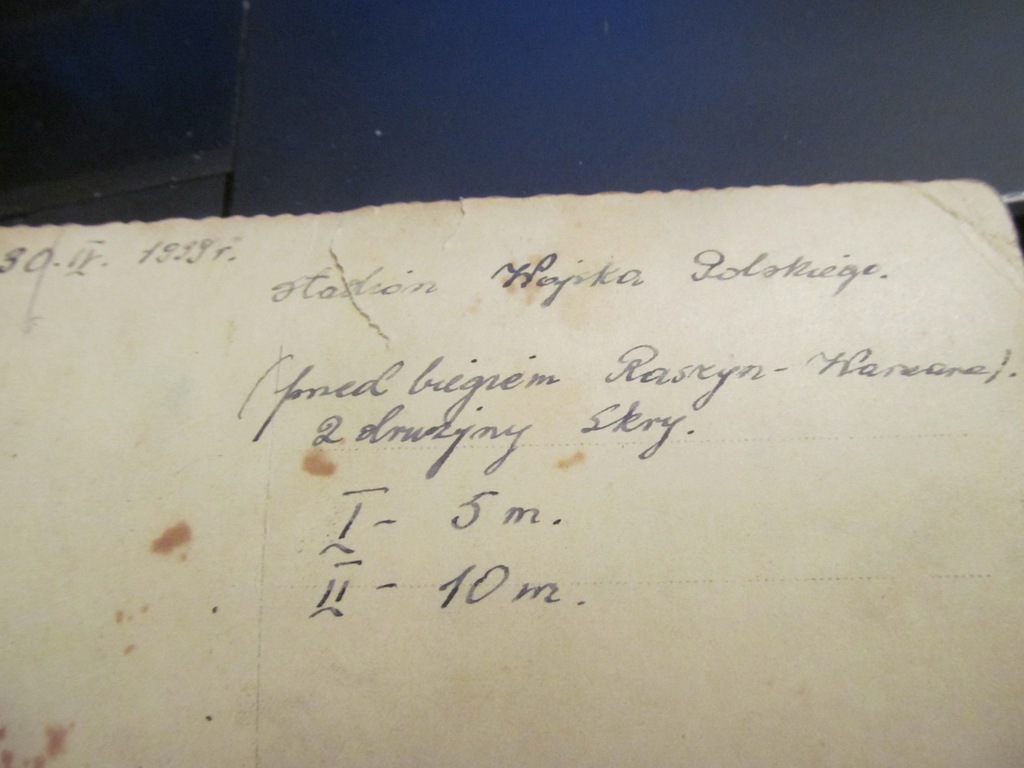 30. IV. 1939 r.
stadion Wojska Polskiego.
(przed biegiem Raszyn - Warszawa).
2 drużyny Skry.
I - 5 m.
II - 10 m.